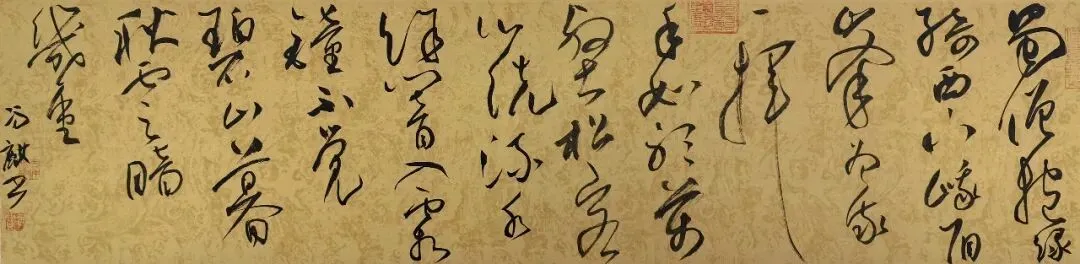 蜀僧抱緑
綺西下峨眉
峯为我
一揮
手如聽萬
壑松客
心洗流水
餘響入霜
鐘不覺
碧山暮
秋雲暗
幾重
冯书